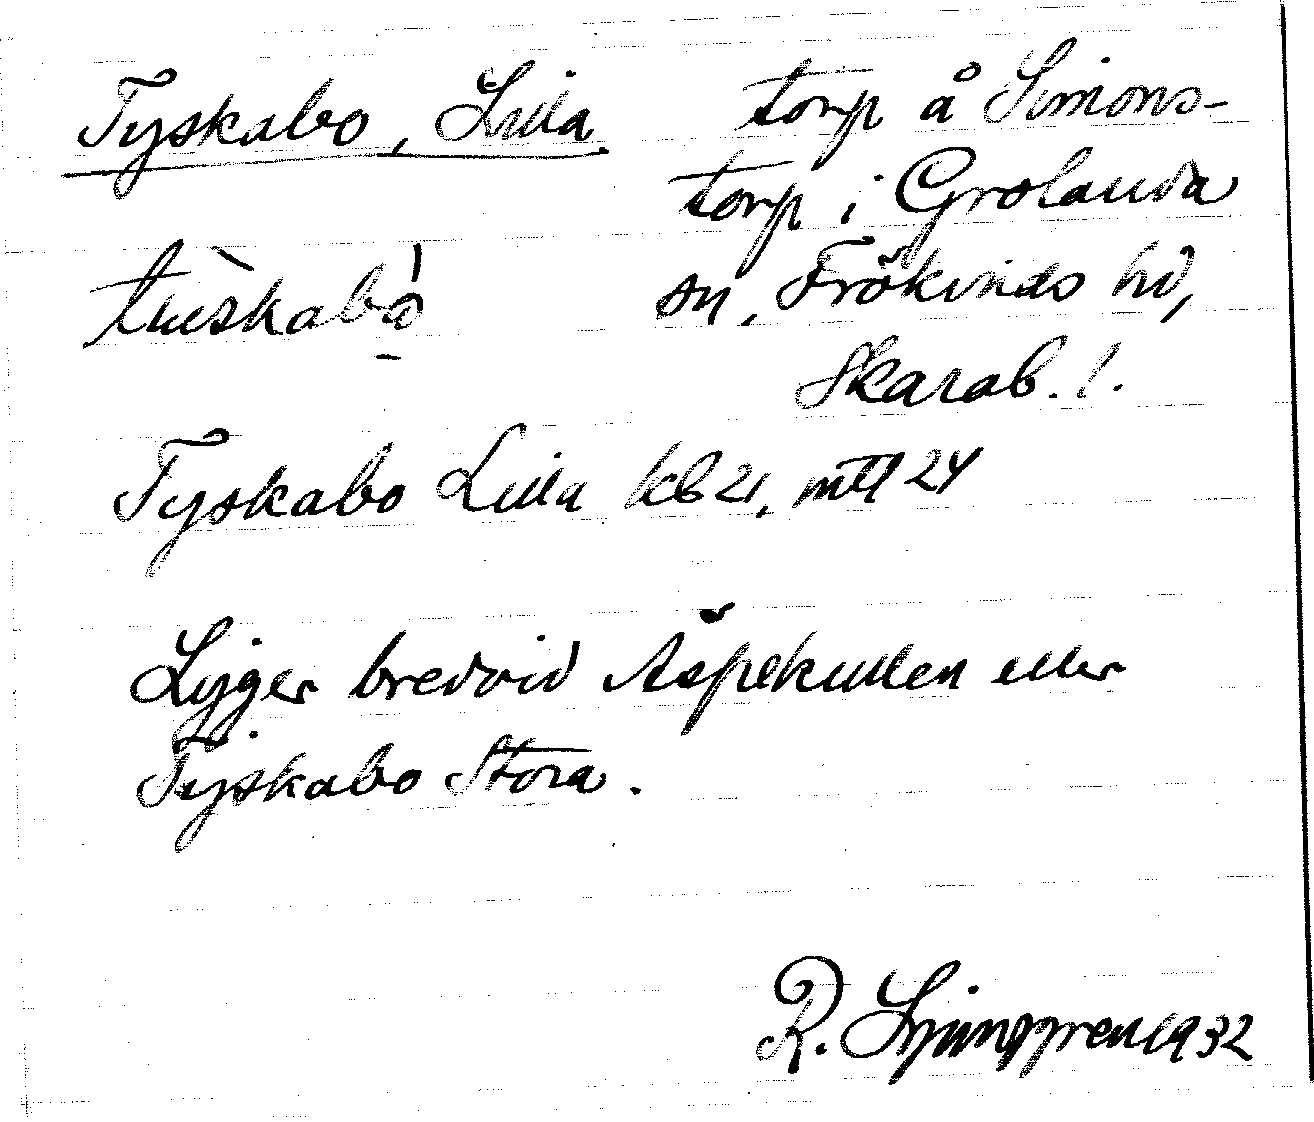 Tyskabo, Lilla torp å Simons-
torp i Grolanda
sn, Frökinds hd,
Skarab. l.
Tyskabo Lilla kb 21, mtl 24
Ligger bredvid Aspekullen eller
Tyskabo Stora.
R. Ljunggren 1932